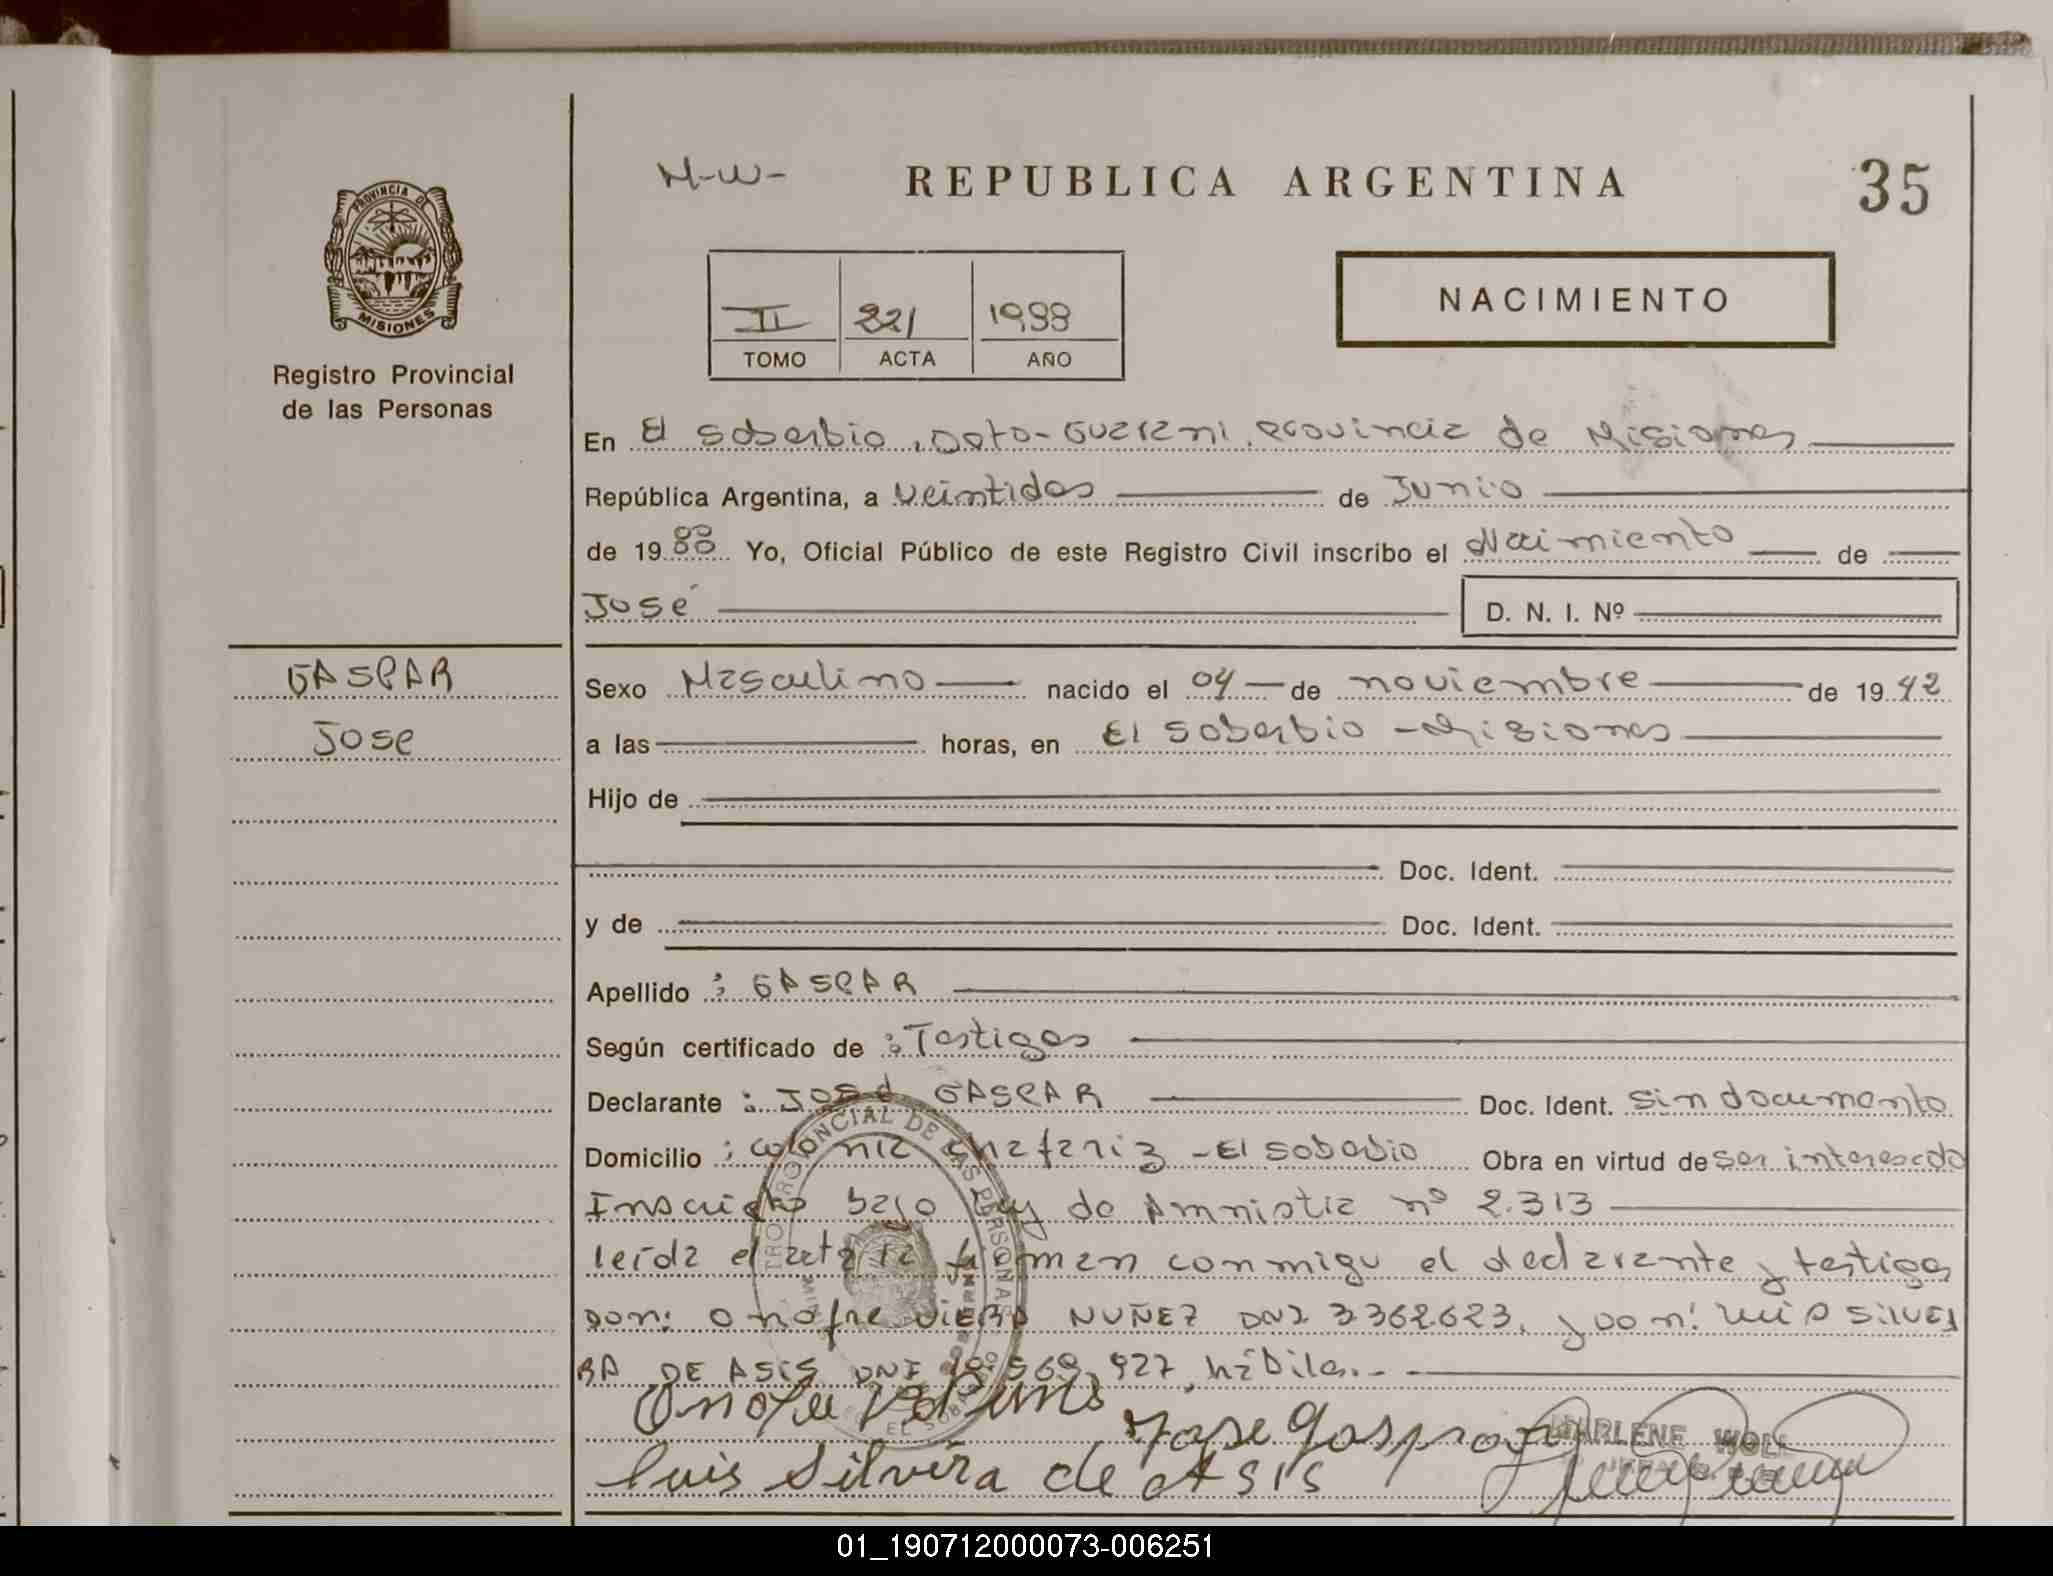 M-W-
REPUBLICA ARGENTINA
35
PROVINCIA DE
MISIONES
Registro Provincial
de las Personas
II 221 1988
TOMO ACTA AÑO
NACIMIENTO
En El Soberbio, Dpto-Guarani, Provincia de Misiones
República Argentina, a veintidos de Junio
de 1988 Yo, Oficial Público de este Registro Civil inscribo el Nacimiento de
José D. N. I. Nº
GASPAR
Jose
Sexo Masculino nacido el 04 de noviembre de 1942
a las horas, en El Soberbio - Misiones
Hijo de
Doc. Ident.
y de Doc. Ident.
Apellido : GASPAR
Según certificado de : Testigos
Declarante : José GASPAR Doc. Ident. sin documento
Domicilio : colonia Chafariz - El Soberbio Obra en virtud de ser interesado
Inscripto bajo Ley de Amnistia nº 2.313
leída el acta la firman conmigo el declarante y testigos
Don: Onofre VIERA NUÑEZ DNI 3362623, y Don: Luis SILVEI
RA DE ASIS DNI 569.927, hábiles.-
Luis Silvira de ASIS
MARLENE WOLL
01_190712000073-006251